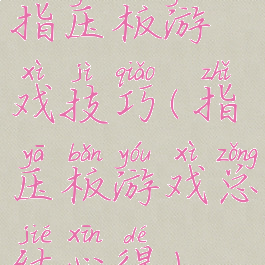 指压板游
xì jì qiǎo zhǐ
戏技巧(指
yā bǎn yóu xì zǒng
压板游戏总
jié xīn dé
结心得)